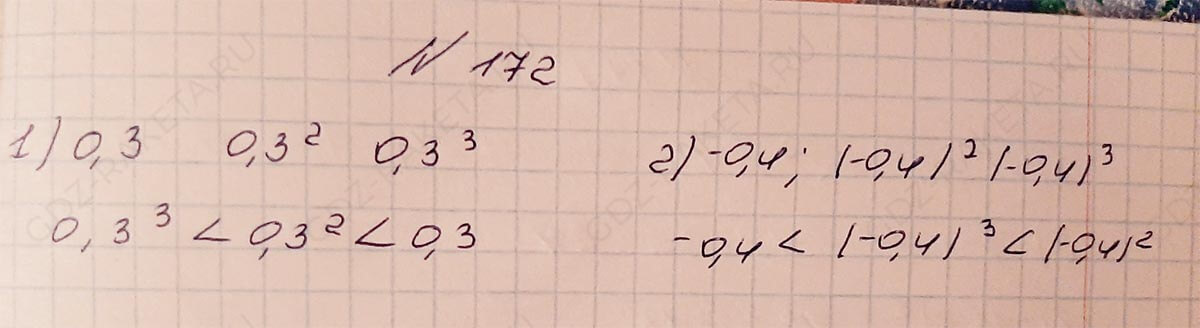 N 172
1) 0,3 0,3² 0,3³
0,3³ < 0,3² < 0,3
2) -0,4; (-0,4)² (-0,4)³
-0,4 < (-0,4)³ < (-0,4)²
GDZ-RAKETA.RU